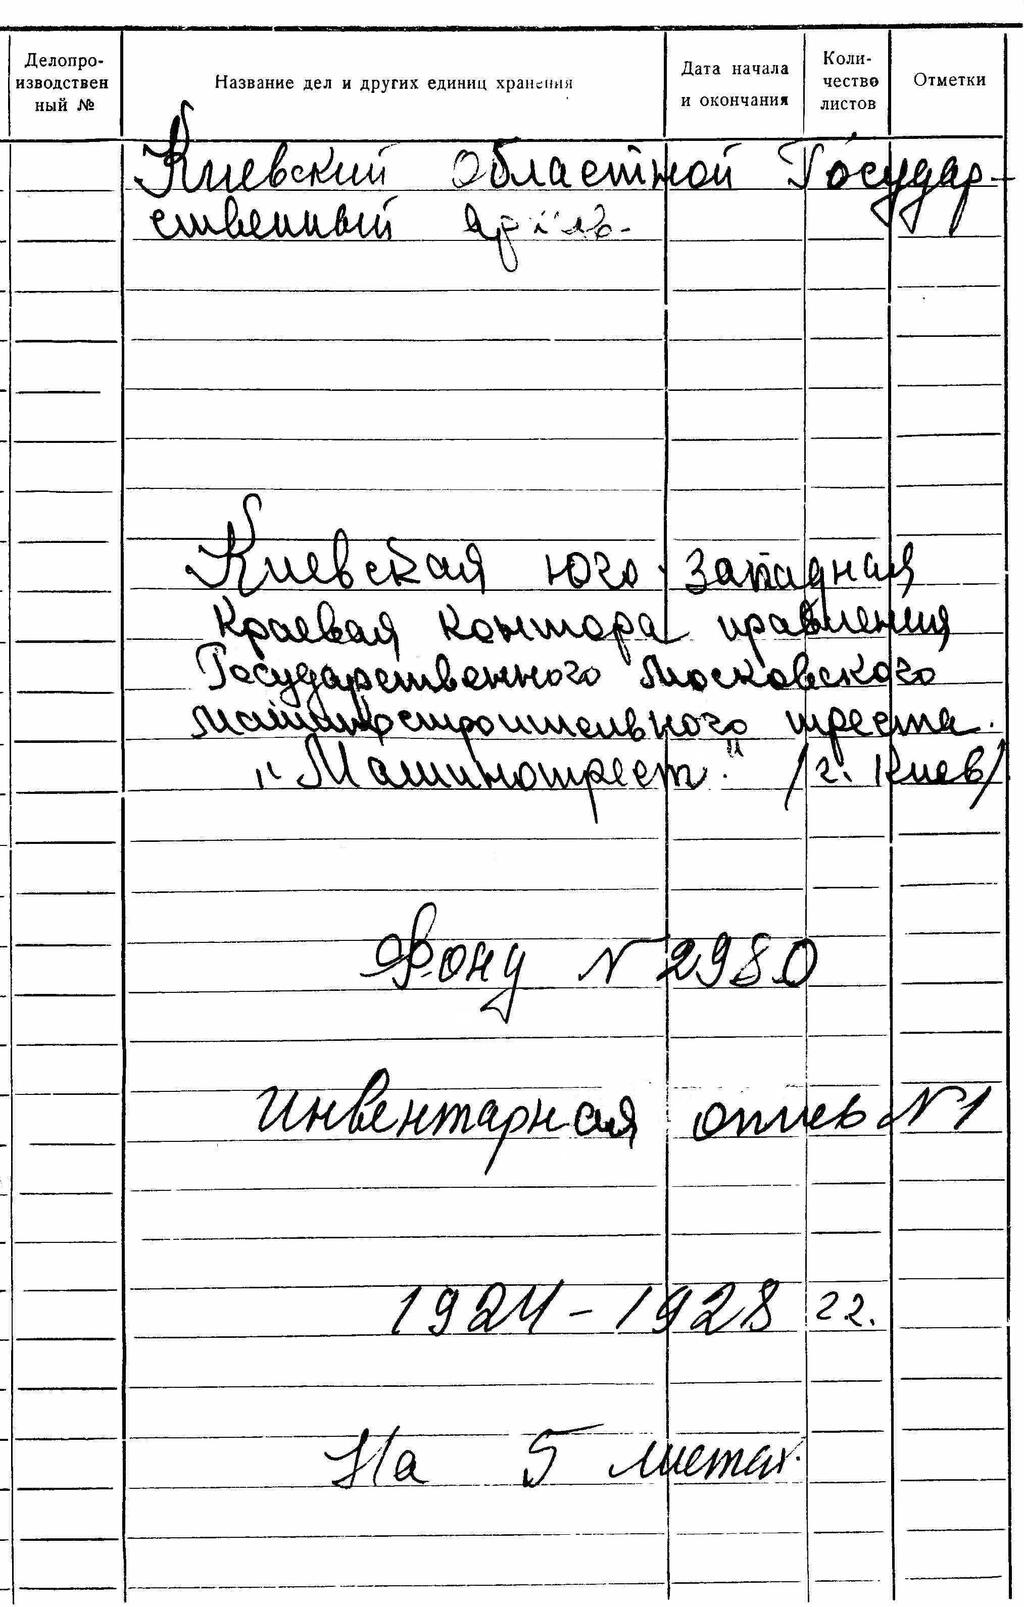 Делопро-
изводствен
ный №
Название дел и других единиц хранения
Дата начала
и окончания
Коли-
чество
листов
Отметки
Киевский Областной Государ-
ственный архивъ.
Киевская юго-западная
Краевая контора правления
Государственного Московского
машиностроительного треста.
„Машинотрест." /г. Киев/
Фонд N 2980
Инвентарная опись N 1
1924-1928 г.г.
На 5 листах.